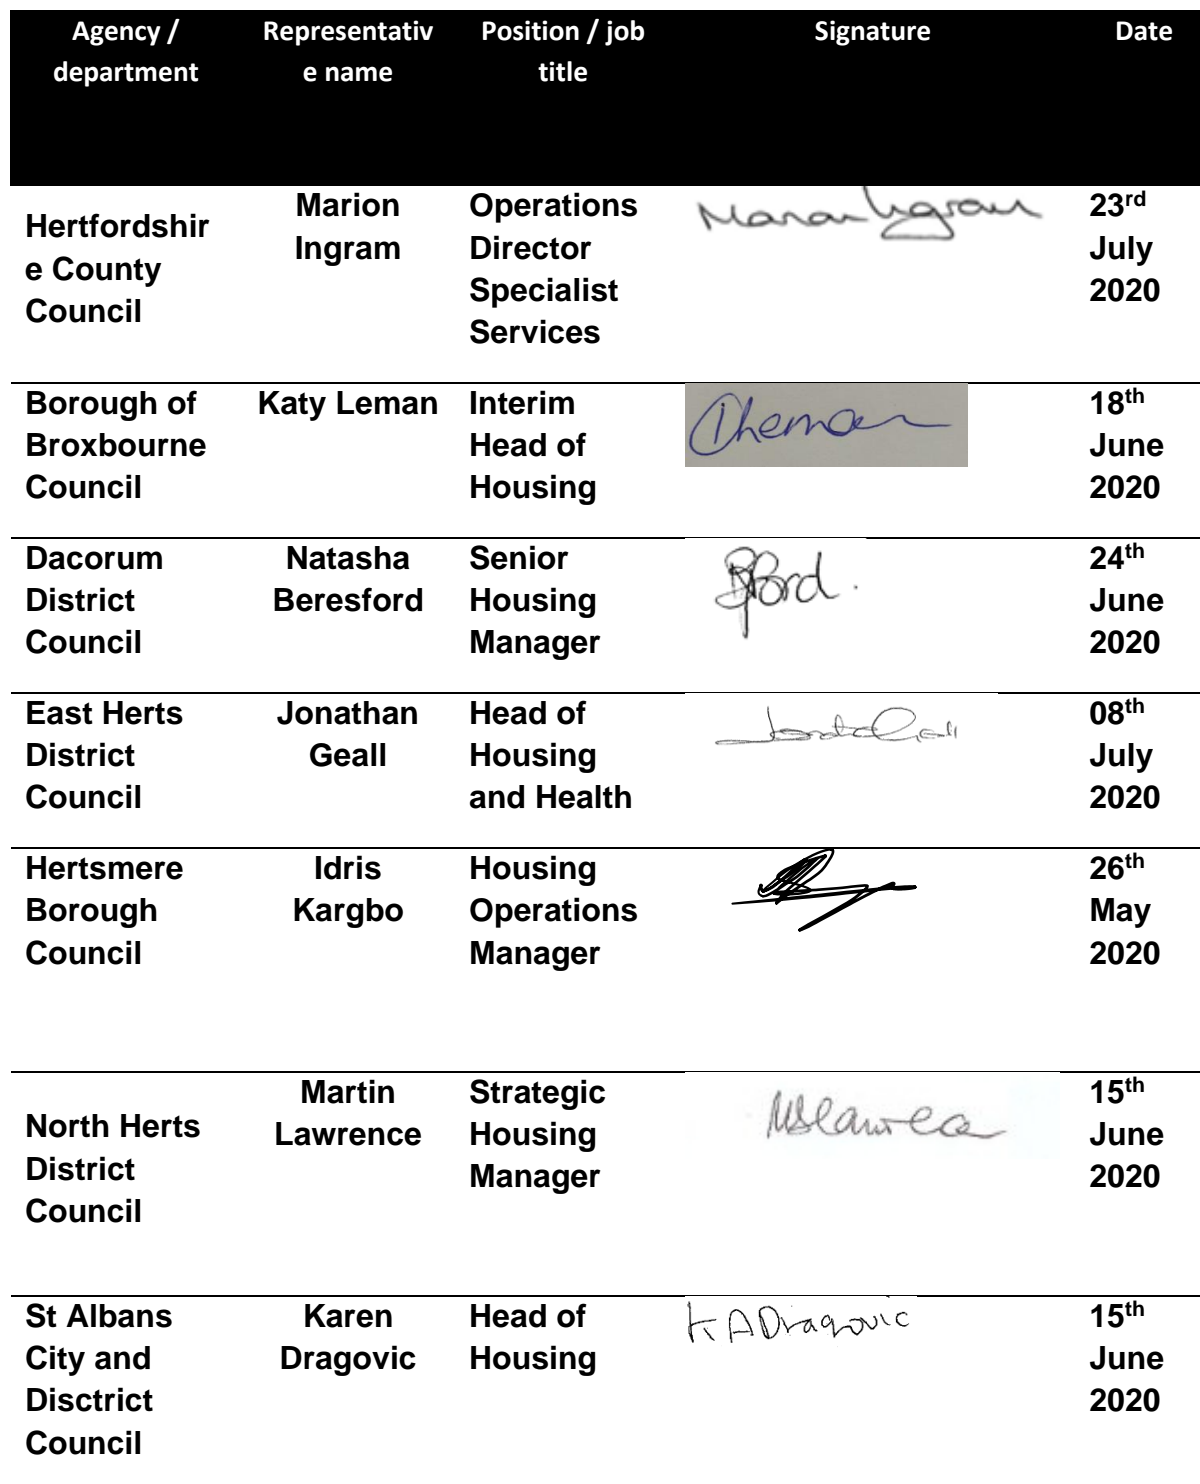 Agency /
department
Representativ
e name
Position / job
title
Signature
Date
Hertfordshir
e County
Council
Marion
Ingram
Operations
Director
Specialist
Services
Marion Ingram
23rd
July
2020
Borough of
Broxbourne
Council
Katy Leman
Interim
Head of
Housing
18th
June
2020
Dacorum
District
Council
Natasha
Beresford
Senior
Housing
Manager
24th
June
2020
East Herts
District
Council
Jonathan
Geall
Head of
Housing
and Health
08th
July
2020
Hertsmere
Borough
Council
Idris
Kargbo
Housing
Operations
Manager
26th
May
2020
North Herts
District
Council
Martin
Lawrence
Strategic
Housing
Manager
15th
June
2020
St Albans
City and
Disctrict
Council
Karen
Dragovic
Head of
Housing
K A Dragovic
15th
June
2020